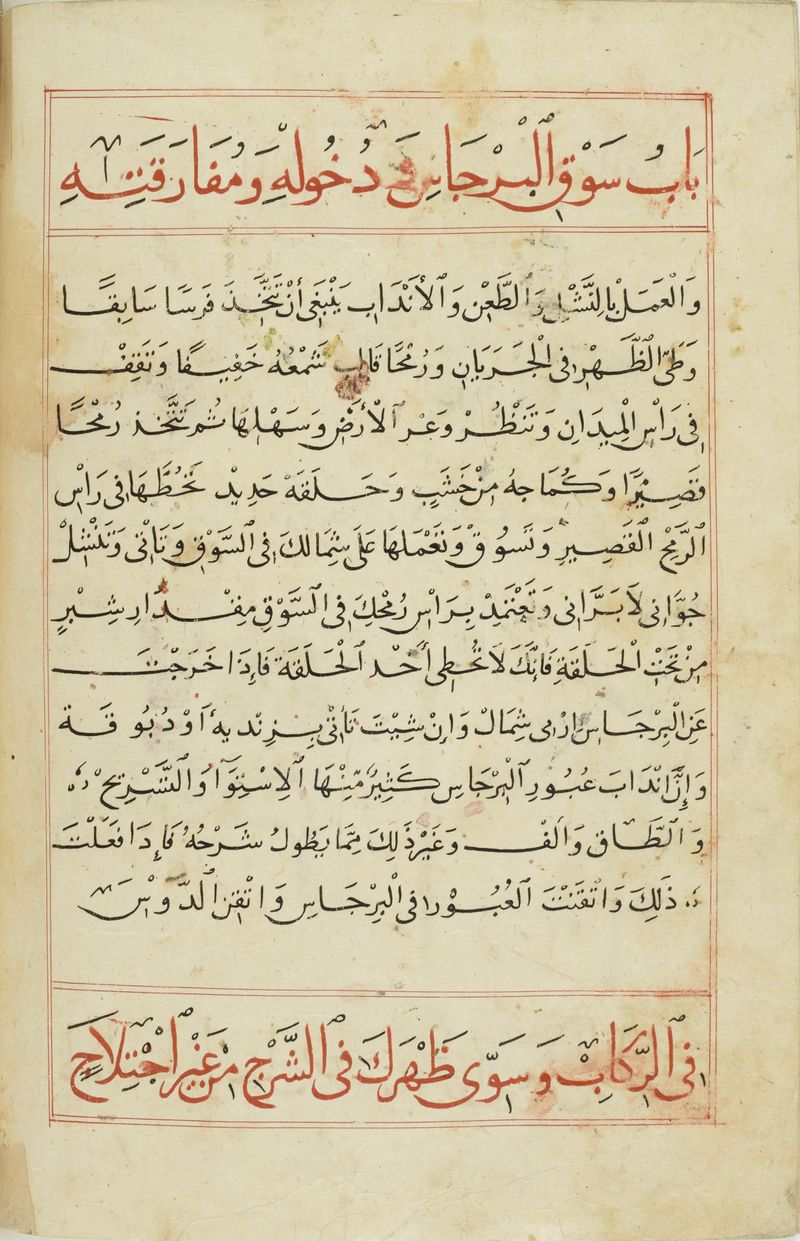 بَابُ سَوْقِ الْبِرْجَاسِ فِي دُخُولِهِ وَمُفَارَقَتِهِ
وَالْعَمَلْ بِالنَّشْلِ وَالطَّعْنِ وَالْأَنْدَابِ يَنْبَغِى أَنْ تَتَّخِذَ فَرَسًا سَابِقًا
وَطِىّ الظَّهْرِ فِى الْجَرَيَانِ وَرُمْحًا قَالِب شَمْعُهُ خَفِيفًا وَتَقِفْ
فِى رَأْسِ الْمِيدَانِ وَتَنْظُرْ وَعْرَ الْأَرْضِ وَسَهْلِهَا ثُم تَتَّخذ رُمْحًا
قَصِيْرًا وَكُمَاجهُ مِنْ خَشَبٍ وَحَلَقَةْ حَدِيْد تَحُطَّهَا فِى رَاْسِ
الرُّمْحِ الْقَصِيرِ وَتَسُوقْ وَتَعْمَلهَا عَلَى شِمَالكَ فِى السَّوْقِ وَتَاْتِى وَتَنْشلْ
جُوَّانِى لَا بَرَّانِى وَتَعْتَمِدْ بِرَاْسِ رُمْحِكَ فِى السَّوْقِ مِقْدَارِ شِبْرٍ
مِنْ تَحْتِ الْحَلَقَةِ فَإِنَّكَ لَا تُخْطِى أَخْد الْحَلَقَة فَإِذَا خَرَجْتَ
عَنِ الْبِرْجَاسِ اِرْمِى شِمَالْ وَإِنْ شِيْتَ تَأْتِى بِزِنْديهْ أَوْ دَبُوقَة
وَإِنَّ انْدَابَ عُبُورِ الْبِرْجَاسِ كَثِيرٌ مِّنْهَا الِاسْتِوَآ وَالتَّسْرِيحْ
وَالطَّاق وَالف وَغَيْرِ ذَلِكَ مِمَّا يَطُولُ شَرْحُهُ فَإِدَا فَعَلْتَ
ذَلِكَ وَاتْقَنْتَ الْعُبُوْر فِى الْبِرْجَاسِ وَاتْقِن الدَّوْسَ
فِى الرِّكَابْ وَسَوِّى ظَهْرَكَ فِى السَّرْجِ مِنْ غَيْرِ اخْتِلَاجٍ